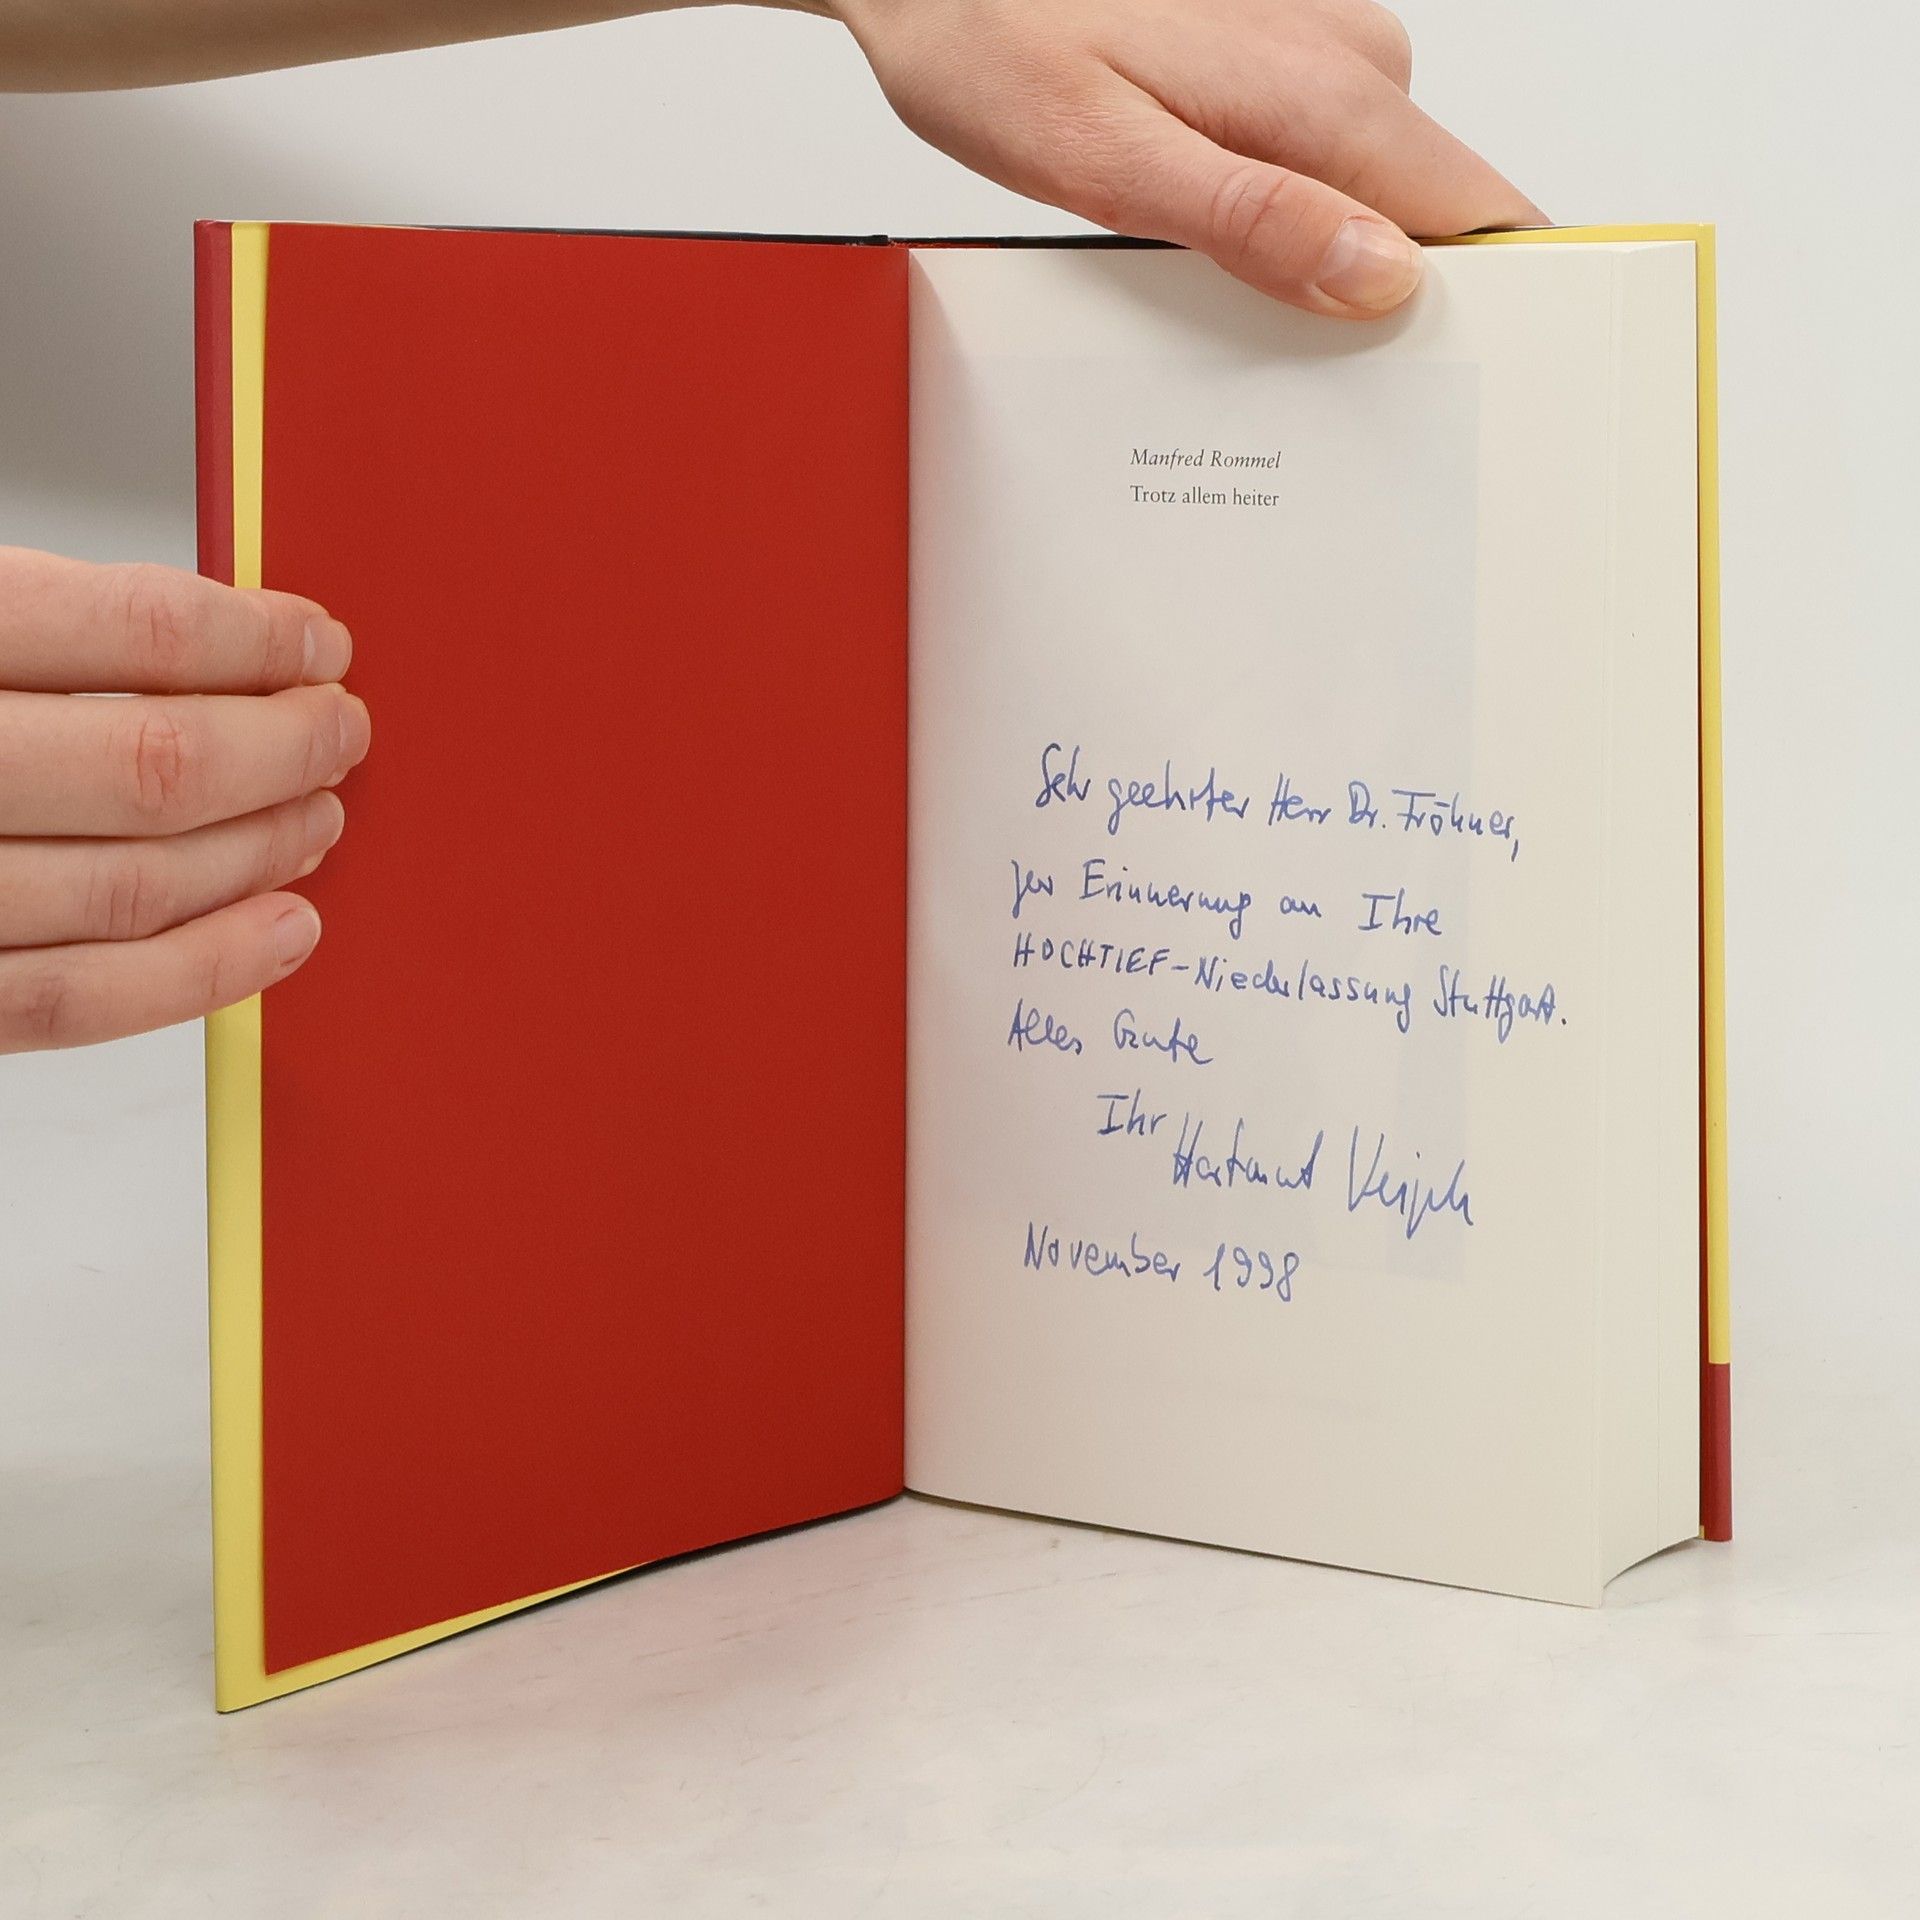 Manfred Rommel
Trotz allem heiter
Sehr geehrter Herr Dr. Fröhner,
zur Erinnerung an Ihre
HOCHTIEF-Niederlassung Stuttgart.
Alles Gute
Ihr Hartmut
November 1998